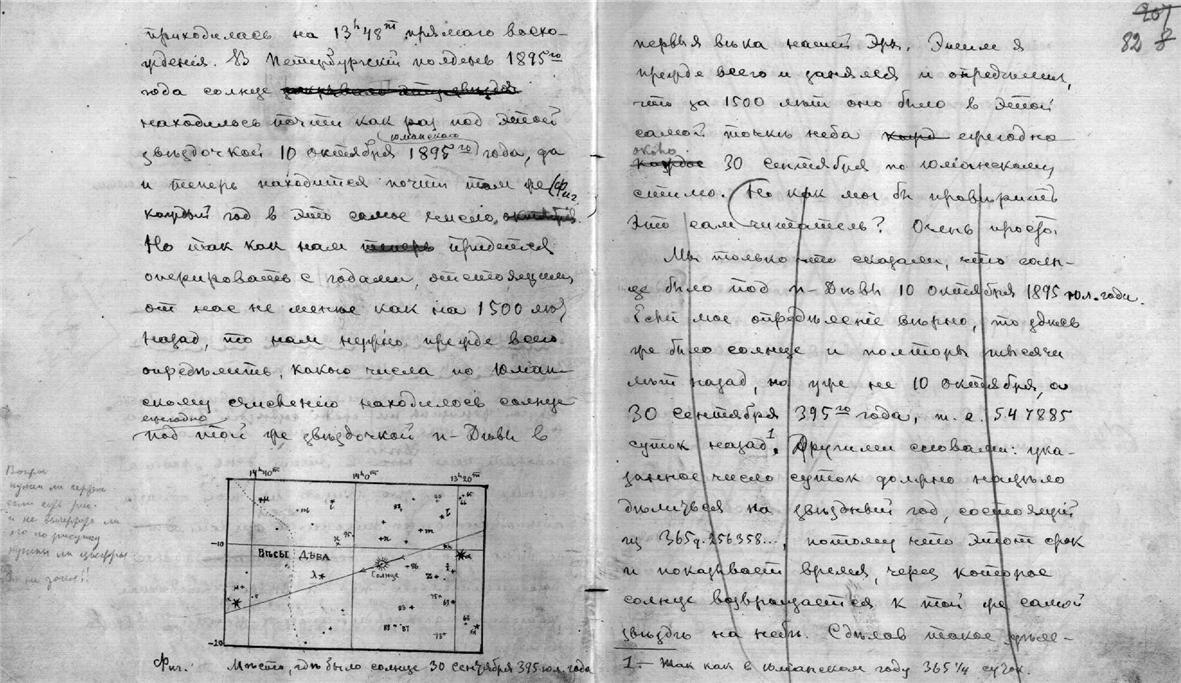 приходилась на 13ʰ48ᵐ прямаго восхо-
ждения. В Петербургскій полдень 1895ᵍᵒ
года солнце
находилось почти как раз под этой
юлианскаго
звѣздочкой 10 октября 1895ᵍᵒ года, да
и теперь находится почти там же (Фиг. )
каждый год в это самое число,
Но так как нам теперь придется
оперировать с годами, отстоящими
от нас не менѣе как на 1500 лѣт
назад, то нам нужно прежде всего
опредѣлить, какого числа по Юлиан-
скому счислению находилось солнце
ежегодно
под той же звѣздочкой n-Дѣвы в
14ʰ40ᵐ 14ʰ0ᵐ 13ʰ20ᵐ
-10
ВѢСЫ ДѢВА
Солнце
-20
Фиг. Мѣсто, гдѣ было солнце 30 сентября 395 юл. года
207
82 8
первыя вѣка нашей Эры. Этим я
прежде всего и занялся и опредѣлил,
что за 1500 лѣт оно было в этой
самой точкѣ неба ежегодно
около
каждое 30 сентября по юлианскому
стилю. Но как мог бы провѣрить
это сам читатель? Очень просто.
Мы только что сказали, что солн-
це было под n-Дѣвы 10 октября 1895 юл. года.
Если мое опредѣление вѣрно, то здѣсь
же было солнце и полторы тысячи
лѣт назад, но уже не 10 октября, а
30 сентября 395ᵍᵒ года, т. е. 547885
суток назад¹. Другими словами: ука-
занное число суток должно нацѣло
дѣлиться на звѣздный год, состоящій
из 365д.256358..., потому что этот срок
и показывает время, через которое
солнце возвращается к той же самой
звѣздѣ на небѣ. Сдѣлав такое дѣле-
1 — Так как в юлианском году 365 1/4 суток.